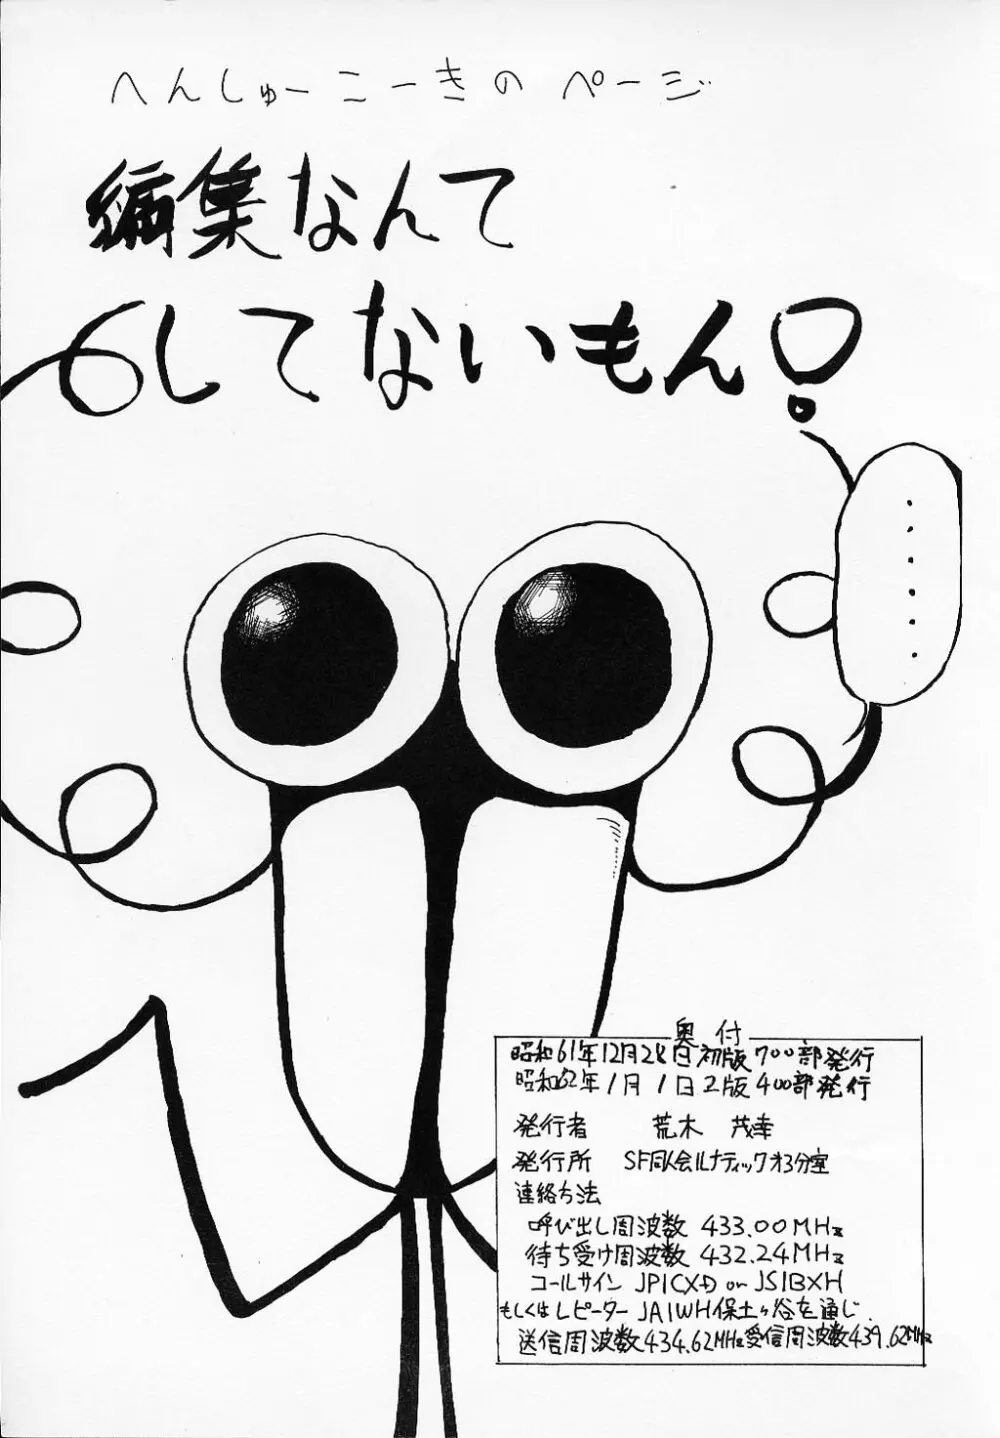 へんしゅーこーきの ページ
編集なんて
してないもん!
・・・・・・
奥付
昭和61年12月28日初版700部発行
昭和62年1月1日2版400部発行
発行者 荒木 茂幸
発行所 SF同人会ルナティックオ3分室
連絡方法
呼び出し周波数 433.00MHz
待ち受け周波数 432.24MHz
コールサイン JP1CXD or JS1BXH
もしくはレピーター JA1WH保土ヶ谷を通じ.
送信周波数434.62MHz受信周波数439.62MHz